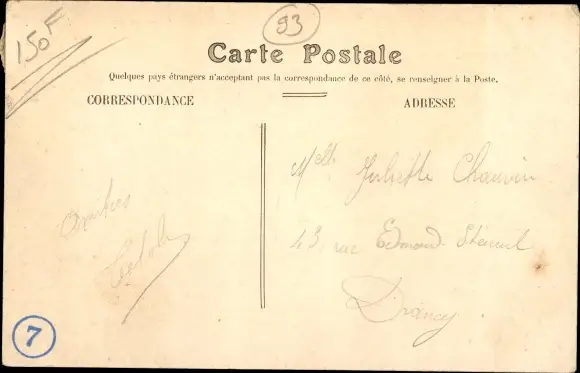 150F
93
Carte Postale
Quelques pays étrangers n'acceptant pas la correspondance de ce côté, se renseigner à la Poste.
CORRESPONDANCE
ADRESSE
Mlle Juliette Chauvin
43, rue Edmond
Drancy
Amitiés
7